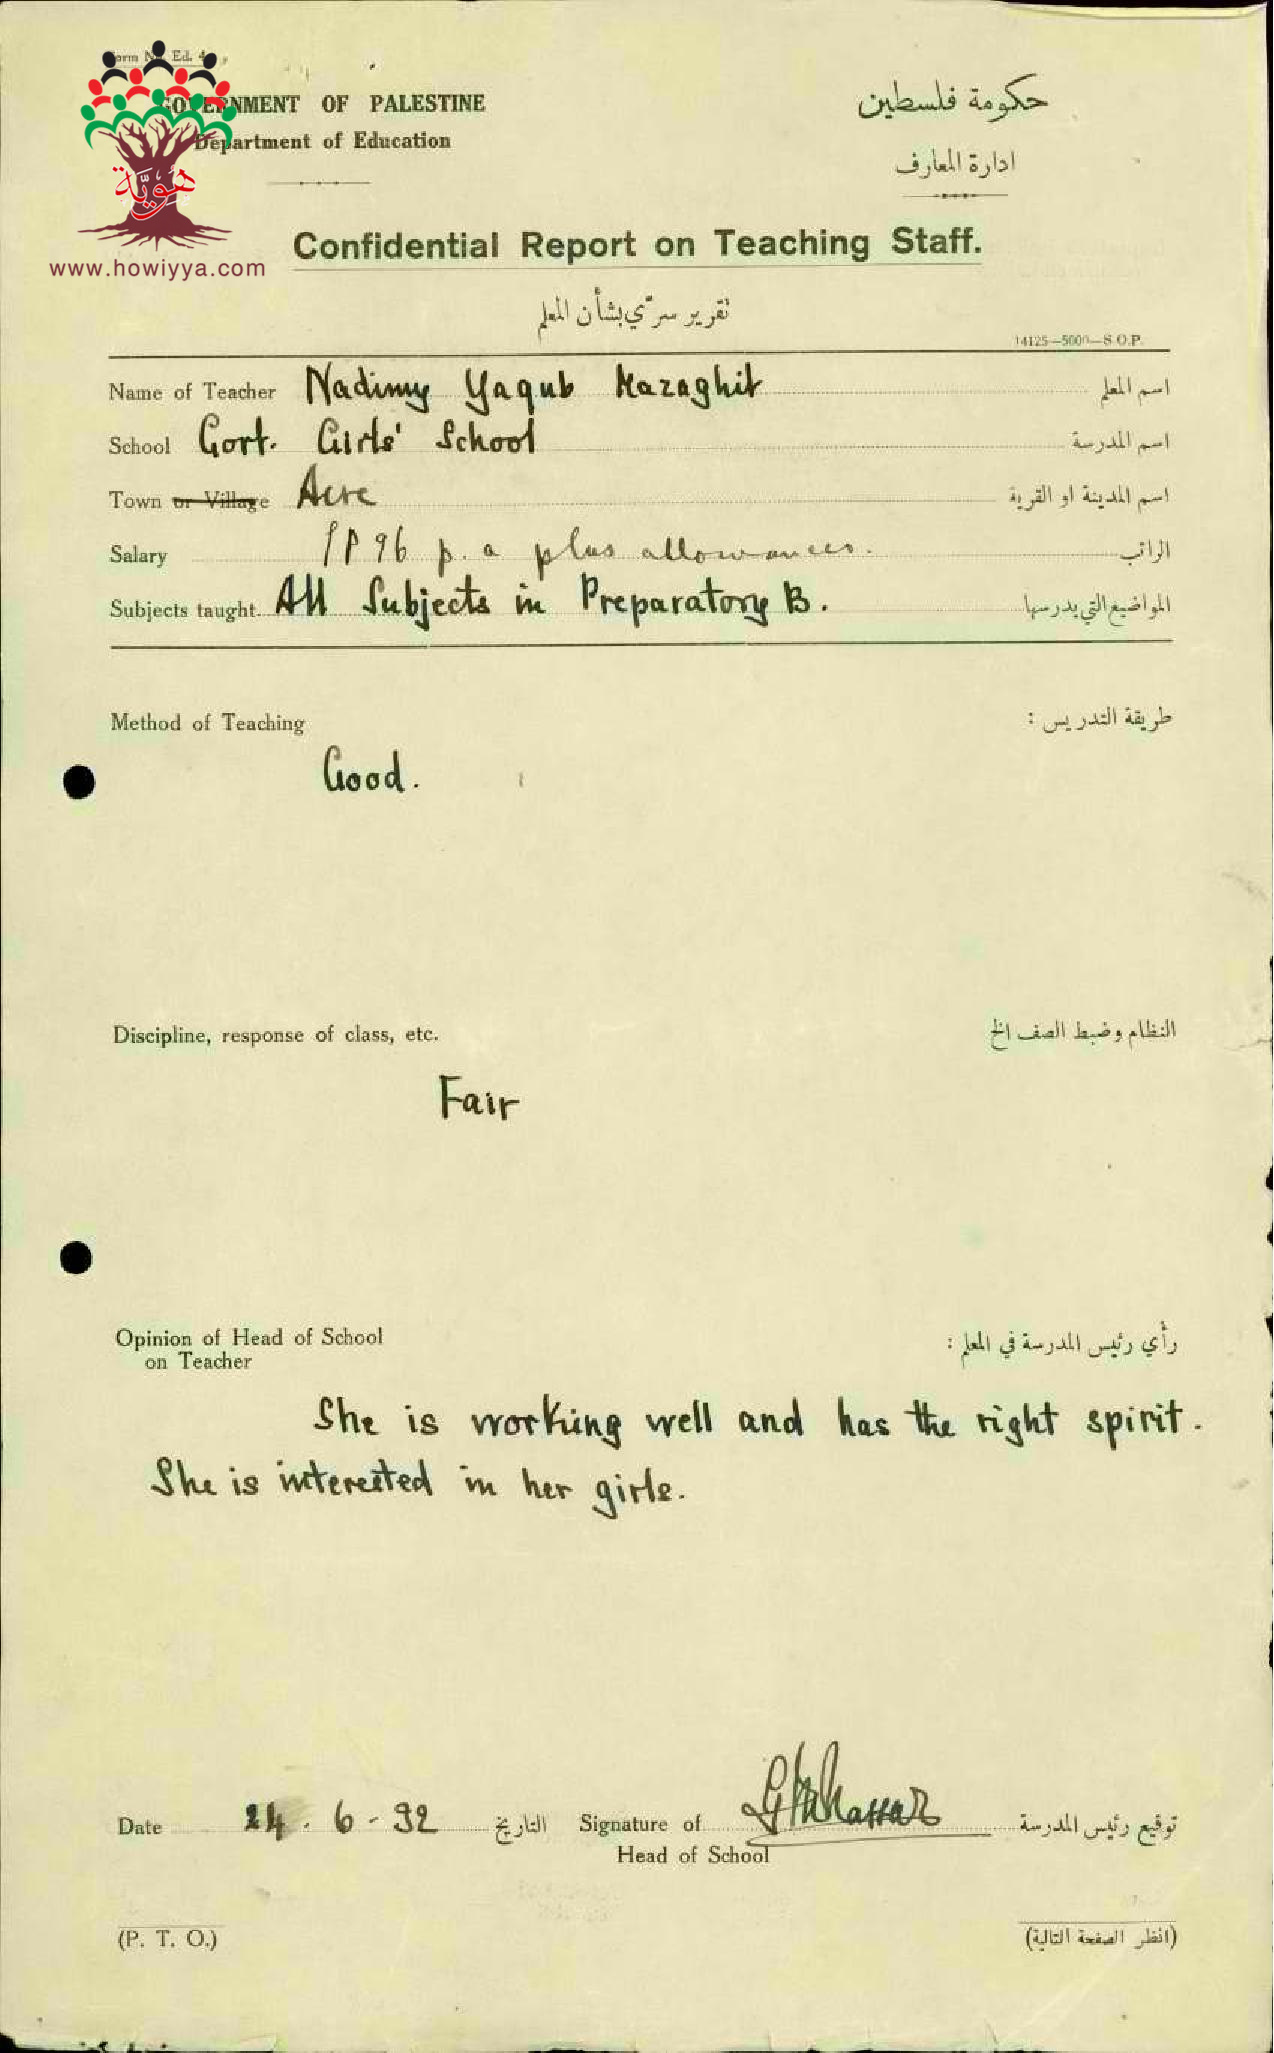 Form No. Ed. 4
GOVERNMENT OF PALESTINE
حكومة فلسطين
Department of Education
ادارة المعارف
هويّة
www.howiyya.com
Confidential Report on Teaching Staff.
تقرير سرّي بشأن المعلم
14125—5000—S.O.P.
Name of Teacher Nadimy Yaqub Mazaghit اسم المعلم
School Govt. Girls' School اسم المدرسة
Town or Village Acre اسم المدينة او القرية
Salary 96 p. a plus allowances. الراتب
Subjects taught All Subjects in Preparatory B. المواضيع التي يدرسها
Method of Teaching طريقة التدريس :
Good.
Discipline, response of class, etc. النظام وضبط الصف الخ
Fair
Opinion of Head of School رأي رئيس المدرسة في المعلم :
on Teacher
She is working well and has the right spirit.
She is interested in her girls.
Date 24. 6 - 32 التاريخ Signature of توقيع رئيس المدرسة
Head of School
(P. T. O.) (انظر الصفحة التالية)